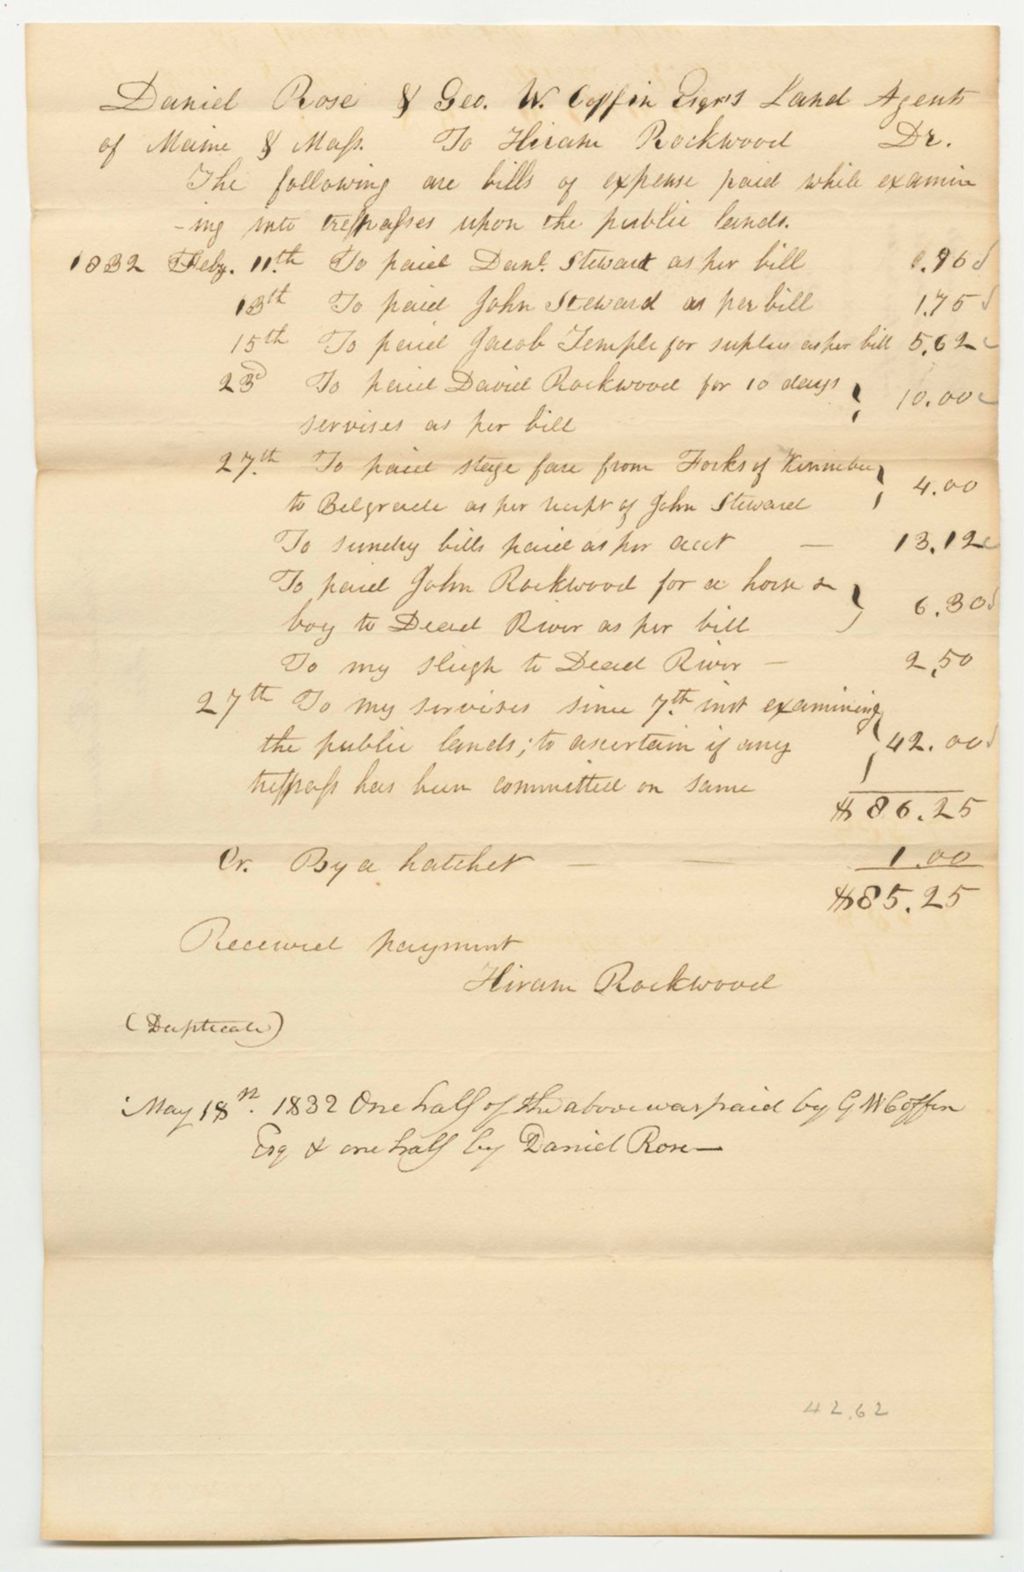 Daniel Rose & Geo. W. Coffin Esqr's Land Agents
of Maine & Mass. To Hiram Rockwood Dr.
The following are bills of expense paid while examin
-ing into trespasses upon the public lands.
1832 Feby. 11th To paid Danl. Steward as per bill 0.96
13th To paid John Steward as per bill 1.75
15th To paid Jacob Temple for suplies as per bill 5.62
23d To paid David Rockwood for 10 days
servises as per bill 10.00
27th To paid stage fare from Forks of Kennebec
to Belgrade as per recpt of John Steward 4.00
To sundry bills paid as per acct — 13.12
To paid John Rockwood for a horse &
boy to Dead River as per bill 6.30
To my sleigh to Dead River — 2.50
27th To my servises since 7th inst examining
the public lands; to ascertain if any 42.00
trespass has been committed on same
$86.25
Cr. By a hatchet — — 1.00
$85.25
Received payment
Hiram Rockwood
(Duplicate)
May 18th. 1832 One half of the above was paid by G W Coffin
Esq & one half by Daniel Rose—
42.62